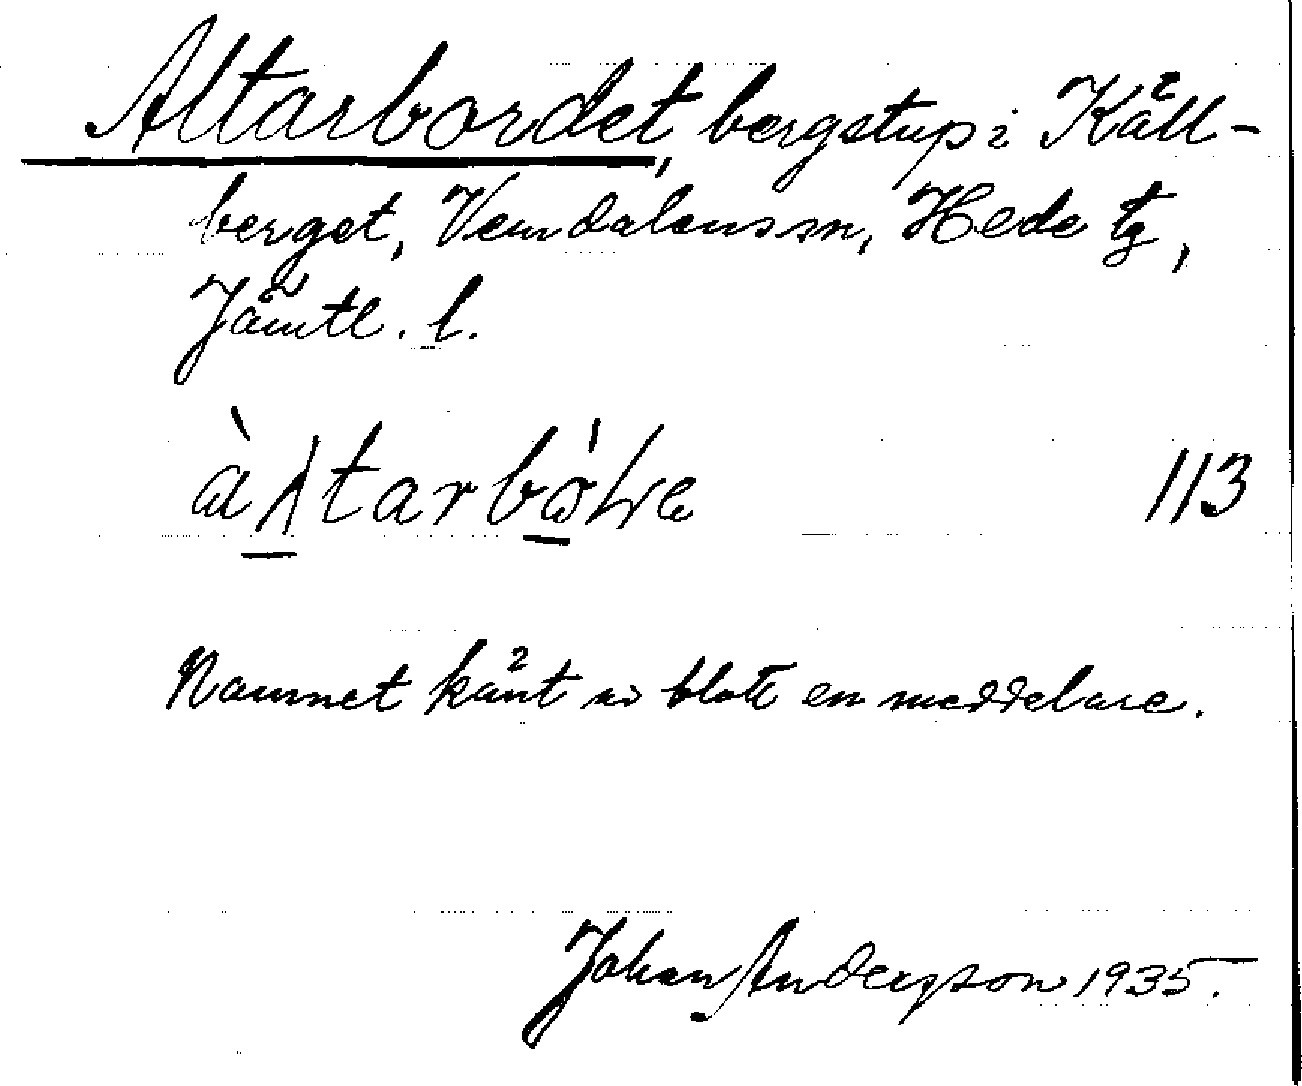 Altarbordet, bergstup i Käll-
berget, Vemdalens sn, Hede tg,
Jämtl. l.
113
Namnet känt av blott en meddelare.
Johan Andersson 1935.